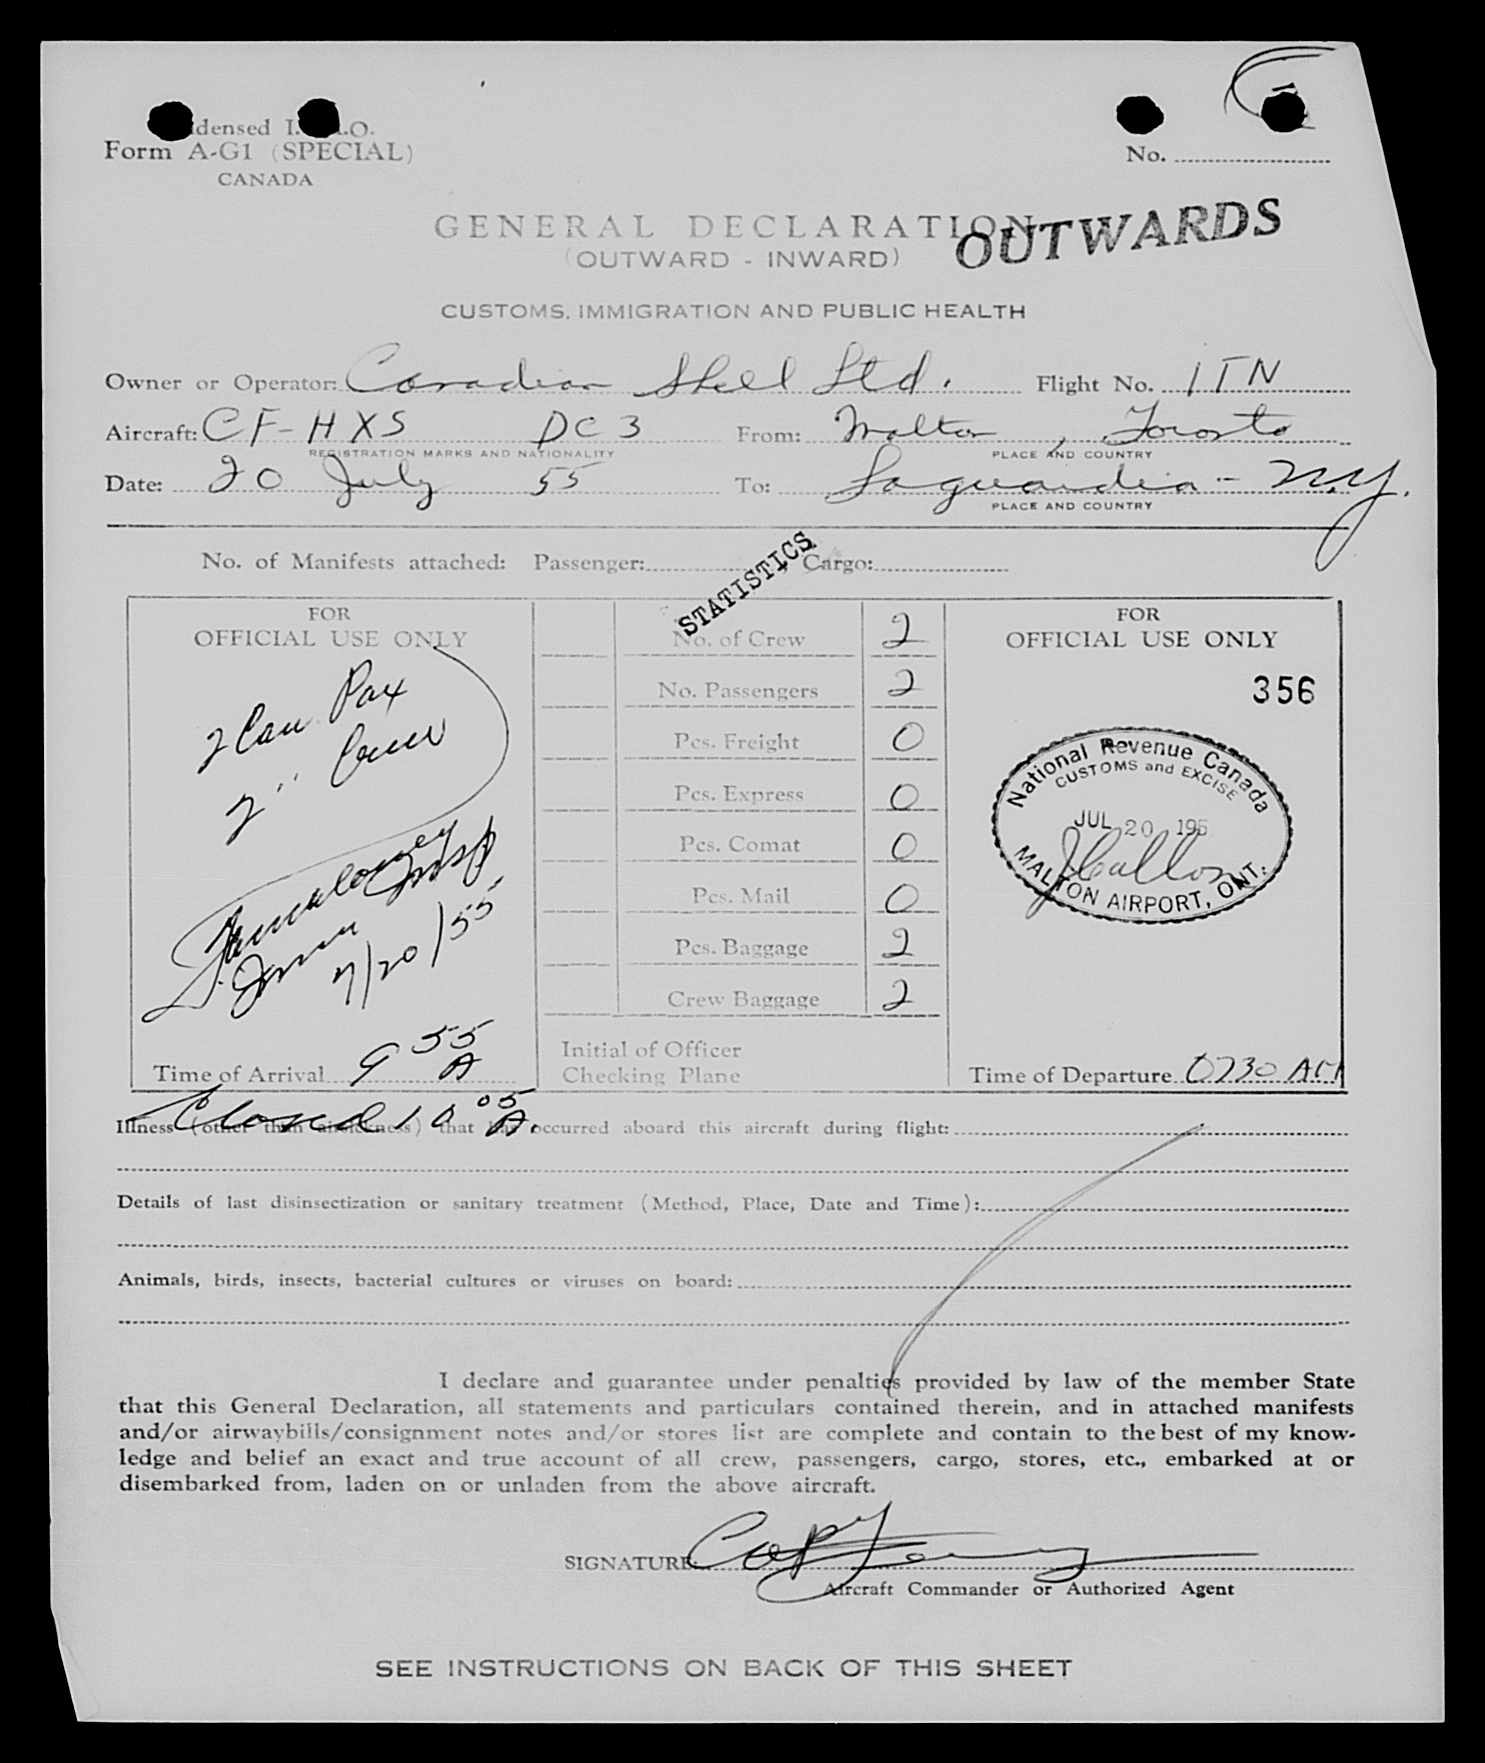 densed I. .O.
Form A-G1 (SPECIAL)
CANADA
No.
GENERAL DECLARATION
OUTWARDS
(OUTWARD - INWARD)
CUSTOMS, IMMIGRATION AND PUBLIC HEALTH
Owner or Operator: Canadian Shell Ltd. Flight No. 1TN
Aircraft: CF-HXS DC3 From: Malton, Toronto
REGISTRATION MARKS AND NATIONALITY PLACE AND COUNTRY
Date: 20 July 55 To: Laguardia - N.Y.
PLACE AND COUNTRY
No. of Manifests attached: Passenger: Cargo:
STATISTICS
FOR
OFFICIAL USE ONLY
2 Can Pax
2 " Crew
Immn Insp
7/20/55
Time of Arrival 9 55 A
No. of Crew 2
No. Passengers 2
Pcs. Freight 0
Pcs. Express 0
Pcs. Comat 0
Pcs. Mail 0
Pcs. Baggage 2
Crew Baggage 2
Initial of Officer
Checking Plane
FOR
OFFICIAL USE ONLY
356
National Revenue Canada
CUSTOMS and EXCISE
JUL 20 195
MALTON AIRPORT, ONT.
Time of Departure 0730 AM
Closed 10 05 A.
Illness (other than airsickness) that has occurred aboard this aircraft during flight:
Details of last disinsectization or sanitary treatment (Method, Place, Date and Time):
Animals, birds, insects, bacterial cultures or viruses on board:
I declare and guarantee under penalties provided by law of the member State
that this General Declaration, all statements and particulars contained therein, and in attached manifests
and/or airwaybills/consignment notes and/or stores list are complete and contain to the best of my know-
ledge and belief an exact and true account of all crew, passengers, cargo, stores, etc., embarked at or
disembarked from, laden on or unladen from the above aircraft.
SIGNATURE
Aircraft Commander or Authorized Agent
SEE INSTRUCTIONS ON BACK OF THIS SHEET